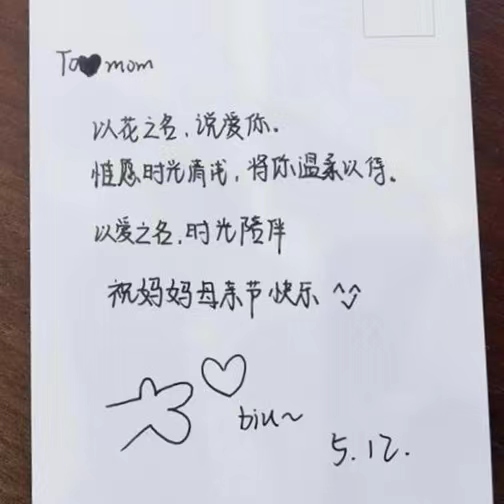 To♥mom
以花之名，说爱你。
惟愿时光清浅，将你温柔以待。
以爱之名，时光陪伴
祝妈妈母亲节快乐 ^^
biu~
5.12.